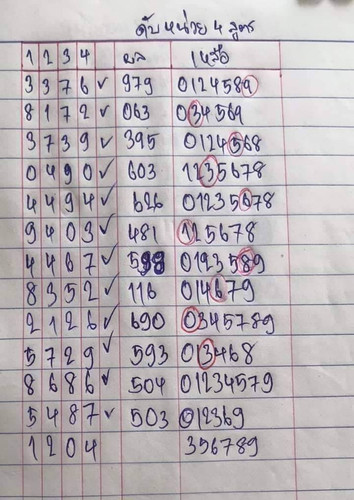 ดับหน่วย 4 สูตร
1 2 3 4 ผล เหลือ
3 3 7 6 ✓ 979 0124589
8 1 7 2 ✓ 063 034569
3 7 3 9 ✓ 395 0124568
0 4 9 0 ✓ 603 1235678
4 4 9 4 ✓ 626 01235678
9 4 0 3 ✓ 481 125678
4 4 6 7 ✓ 598 0123589
8 3 5 2 ✓ 116 014679
2 1 2 6 ✓ 690 0345789
5 7 2 9 ✓ 593 013468
8 6 8 6 ✓ 504 01234579
5 4 8 7 ✓ 503 012369
1 2 0 4 356789